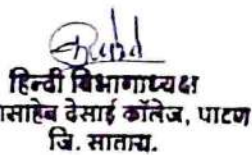 हिन्दी विभागाध्यक्ष
ासाहेब देसाई कॉलेज, पाटण
जि. सातारा.